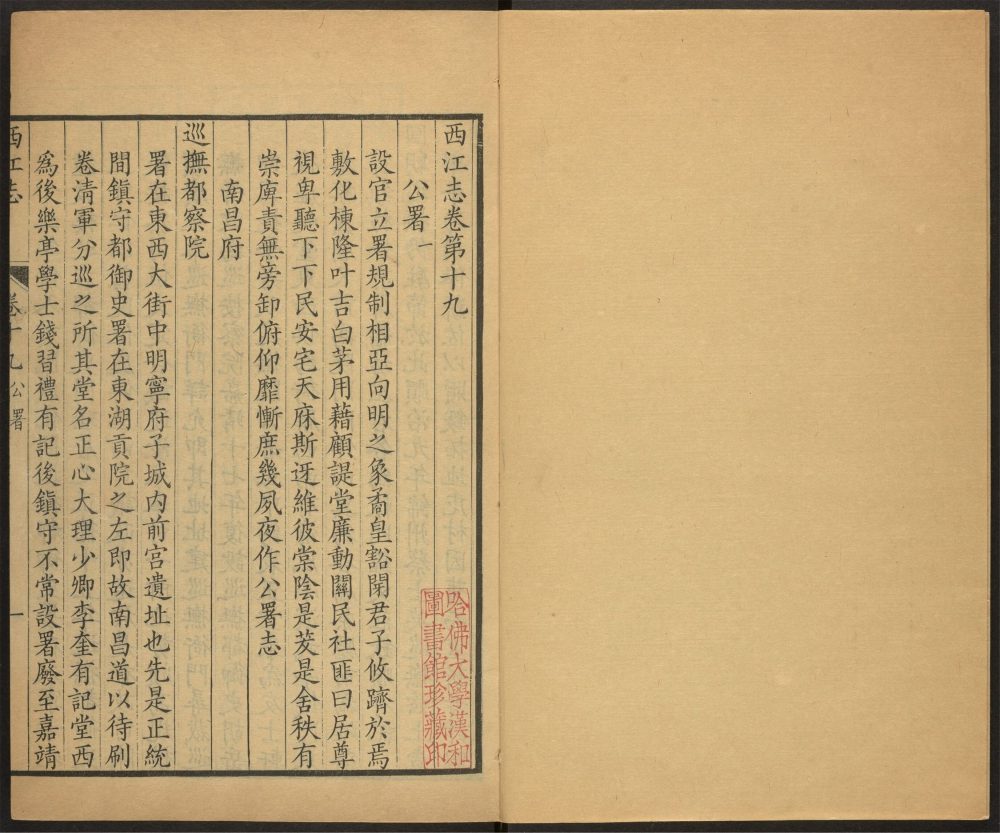 西江志卷第十九
公署一
設官立署規制相亞向明之象矞皇豁閉君子攸躋於焉
敷化棟隆叶吉白茅用藉顧諟堂廉動關民社匪曰居尊
視卑聽下下民安宅天庥斯迓維彼棠陰是茇是舍秩有
崇庳責無旁卸俯仰靡慚庶幾夙夜作公署志
南昌府
巡撫都察院
署在東西大街中明寧府子城内前宮遺址也先是正統
間鎮守都御史署在東湖貢院之左即故南昌道以待刷
卷淸軍分巡之所其堂名正心大理少卿李奎有記堂西
爲後樂亭學士錢習禮有記後鎮守不常設署廢至嘉靖
西江志
卷十九公署
一
哈佛大學漢和
圖書館珍藏印